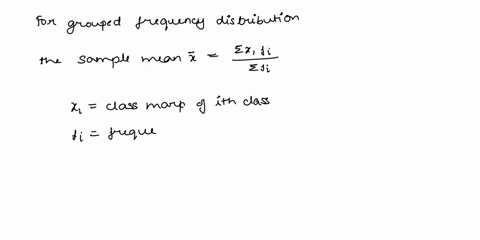 For grouped frequency distribution
the sample mean x̄ = Σxᵢfᵢ / Σfᵢ
xᵢ = class mark of ith class
fᵢ = freque